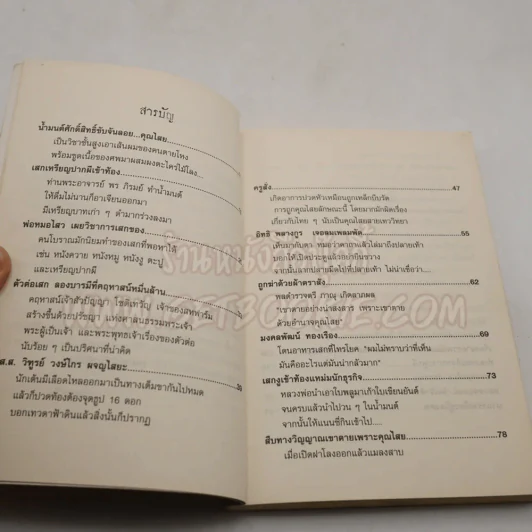 สารบัญ
น้ำมนต์ศักดิ์สิทธิ์ขับจันลอย...คุณไสย
เป็นวิชาชั้นสูงเอาเส้นผมของคนตายโหง
พร้อมขูดเนื้อของศพมาผสมผงตะไคร่ไม้โลง...
เสกเหรียญปากผีเข้าท้อง
ท่านพระอาจารย์ พร ภิรมย์ ทำน้ำมนต์
ให้ดื่มไม่นานก็อาเจียนออกมา
มีเหรียญบาทเก่า ๆ ดำมากร่วงลงมา
พ่อหมอไสว เผยวิชาการเสกของ
คนโบราณมักนิยมทำของเสกที่พอหาได้
เช่น หนังควาย หนังหมู หนังงู ตะปู
และเหรียญปากผี
ตัวต่อเสก ลองบารมีที่คฤหาสน์หมื่นล้าน
คฤหาสน์เจ้าสัวปัญญา โชติเทวัญ เจ้าของสหฟาร์ม
สร้างขึ้นด้วยปรัชญา แห่งศาสนธรรมพระเจ้า
พระผู้เป็นเจ้า และพระพุทธเจ้าเรื่องของตัวต่อ
นับร้อย ๆ เป็นปริศนาที่น่าคิด
ส.ส. วิฑูรย์ วงษ์ไกร ผจญไสยะ
นักเต้นมีเลือดไหลออกมาเป็นทางเต็มขากันไปหมด
แล้วก็ปวดท้องต้องจุดธูป 16 ดอก
บอกเทวดาฟ้าดินแล้วสิ่งนั้นก็ปรากฏ
ครูสั่ง 47
เกิดอาการปวดหัวเหมือนถูกเหล็กบีบรัด
การถูกคุณไสยลักษณะนี้ โดยมากมักผิดเรื่อง
เกี่ยวกับไทย ๆ นับเป็นคุณไสยสายเทวาวิทยา
อิทธิ พลางกูร เจอลมเพลมพัด 55
เดินมากับตา หมอว่าคาถาแล้วไล่มาถึงปลายเท้า
บอกให้เปิดประตูแล้วอย่ายืนขวาง
จากนั้นลากปลายมีดไปที่ปลายเท้า ไม่น่าเชื่อว่า...
ถูกฆ่าด้วยผ้าตราสัง 62
พลตำรวจตรี ภาณุ เกิดลาภผล
"เขาตายอย่างน่าสงสาร เพราะเขาตาย
ด้วยอำนาจคุณไสย"
มงคลพัฒน์ ทองเรือง 69
โดนอาการเสกที่โทรโยค "ผมไม่ทราบว่าที่เห็น
มันคืออะไรแต่มันน่ากลัวมาก"
เสกงูเข้าท้องแหม่มนักธุรกิจ 73
หลวงพ่อนำเอาใบพลูมาเก้าใบเขียนยันต์
จนครบแล้วนำไปวน ๆ ในน้ำมนต์
จากนั้นให้แนนซี่กินเข้าไป....
สืบทางวิญญาณเขาตายเพราะคุณไสย 78
เมื่อเปิดฝาโลงออกแล้วแมลงสาบ